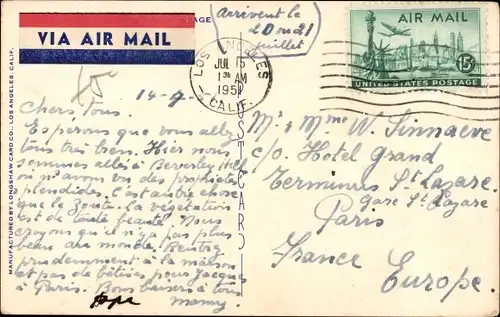 VIA AIR MAIL
AGE
Arrivent le
20 ou 21
juillet
LOS ANGELES
JUL 15
1 30 AM
195
CALIF.
AIR MAIL
15¢
UNITED STATES POSTAGE
POST CARD
MANUFACTURED BY LONGSHAW CARD CO., LOS ANGELES, CALIF.
14-7-
Chers tous.
Esperons que vous allez
tous très bien. Hier nous
sommes allés à Beverley Hill
où n' avons vu des prophietés
splendides. C'est autre chose
que le Zoute. La végétation
est de toute beauté. Nous
croyons qu'il n'y a pas plus
beau au monde. Rentrez
prudemment à la maison
et pas de bêtises pour Jacques
à Paris. Bons baisers à tous
memy
M's Mme W. Sinnaeve
c/o Hotel Grand
Terminus St Lazare
Gare St Lazare
Paris
France
Europe.